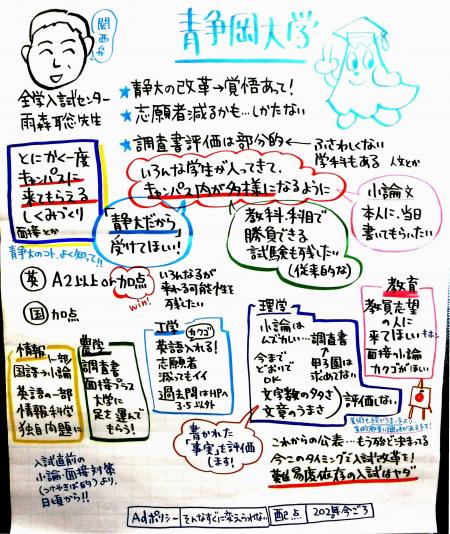 静岡大学
関西弁
全学入試センター
雨森聡先生
★静大の改革→覚悟あって!
★志願者減るかも…しかたない
★調査書評価は部分的←ふさわしくない
学科もある 人文とか
とにかく一度
キャンパスに
来てもらえる
しくみづくり
面接とか
静大のコト、よく知って!!
いろんな学生が入ってきて、
キャンパス内が多様になるように
「静大だから」
受けてほしい!
教科・科目で
勝負できる
試験も残したい
(従来的な)
小論文
本人に、当日
書いてもらいたい
英 A2以上or加点
win!
いろんな子が
来れる可能性を
残したい
国 加点
情報
一部
国語→小論
英語の一部
情報科学
独自問題に
農学
調査書
面接プラス
大学に
足を運んで
もらう!
工学 カクゴ
英語入れる!
志願者
減ってもイイ
過去問はHPへ
3-5以外
理学
小論は
ムズかしい…
今まで
どおりで
OK
調査書
甲子園は
求めてない
文字数の多さ
文章のうまさ
評価しない
書かれた
「事実」を評価
します!
教育
教員志望
の人に
来てほしい キホン
面接・小論
カクゴがほしい
これからの公表…もう殆ど決まってる
今このタイミングで入試改革を!
難易度依存の入試はヤダ
入試直前の
小論・面接対策
(つけやきば的)より、
日頃から!!
Adポリシー そんなすぐに変えられない 配点 2023年今ごろ